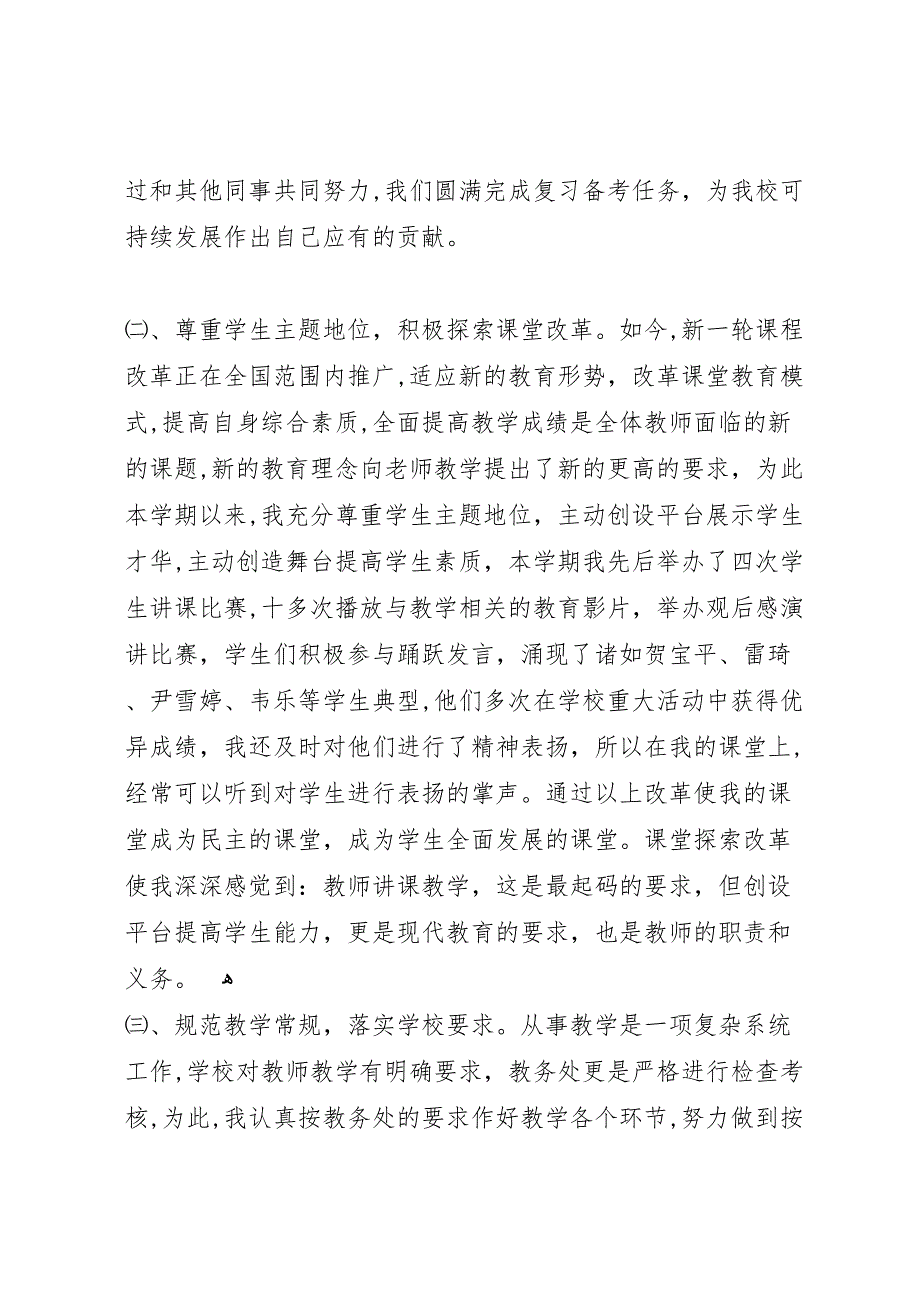 过和其他同事共同努力,我们圆满完成复习备考任务，为我校可
持续发展作出自己应有的贡献。
㈡、尊重学生主题地位，积极探索课堂改革。如今,新一轮课程
改革正在全国范围内推广,适应新的教育形势，改革课堂教育模
式,提高自身综合素质,全面提高教学成绩是全体教师面临的新
的课题,新的教育理念向老师教学提出了新的更高的要求，为此
本学期以来,我充分尊重学生主题地位，主动创设平台展示学生
才华,主动创造舞台提高学生素质，本学期我先后举办了四次学
生讲课比赛,十多次播放与教学相关的教育影片，举办观后感演
讲比赛，学生们积极参与踊跃发言，涌现了诸如贺宝平、雷琦
、尹雪婷、韦乐等学生典型,他们多次在学校重大活动中获得优
异成绩，我还及时对他们进行了精神表扬，所以在我的课堂上,
经常可以听到对学生进行表扬的掌声。通过以上改革使我的课
堂成为民主的课堂，成为学生全面发展的课堂。课堂探索改革
使我深深感觉到：教师讲课教学，这是最起码的要求，但创设
平台提高学生能力，更是现代教育的要求，也是教师的职责和
义务。 ﻫ
㈢、规范教学常规，落实学校要求。从事教学是一项复杂系统
工作,学校对教师教学有明确要求，教务处更是严格进行检查考
核,为此,我认真按教务处的要求作好教学各个环节,努力做到按